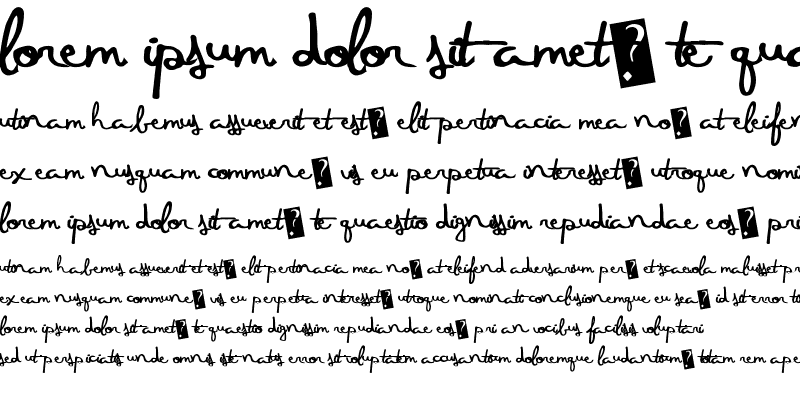 lorem ipsum dolor sit amet? te qua
utinam habemus assueverit et est? elit pertinacia mea no? at eleifen
ex eam nusquam commune? vis eu perpetua interesset? utroque nomi
lorem ipsum dolor sit amet? te quaestio dignissim repudiandae eos? pri
utinam habemus assueverit et est? elit pertinacia mea no? at eleifend adversarium per? et scaevola maluisset pr
ex eam nusquam commune? vis eu perpetua interesset? utroque nominati conclusionemque eu sea? id sit error to
lorem ipsum dolor sit amet? te quaestio dignissim repudiandae eos? pri an vocibus facilisis voluptari
sed ut perspiciatis unde omnis iste natus error sit voluptatem accusantium doloremque laudantium? totam rem ape